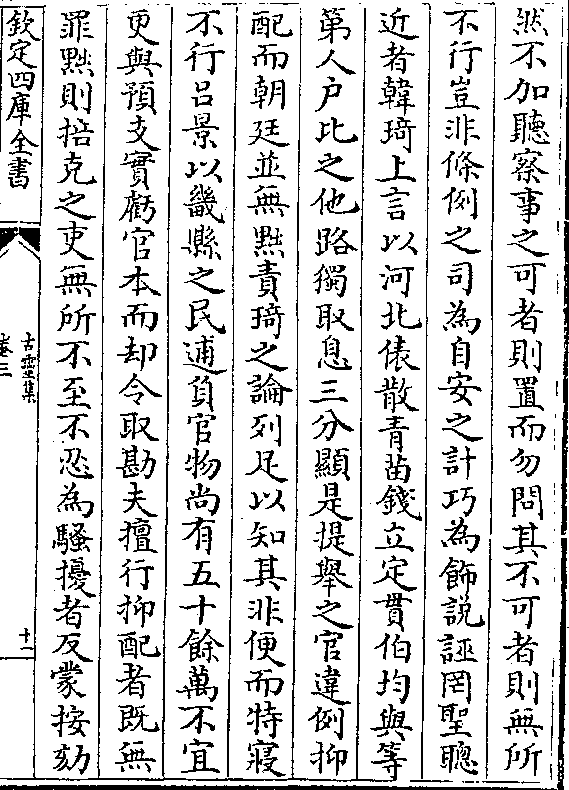 然不加聽察事之可者則置而勿問其不可者則無所
不行豈非條例之司為自安之計巧為飾説誣罔聖聽
近者韓琦上言以河北俵散青苗錢立定貫伯均與等
第人户比之他路獨取息三分顯是提舉之官違例抑
配而朝廷並無黜責琦之論列足以知其非便而特寢
不行吕景以畿縣之民逋負官物尚有五十餘萬不宜
更與預支實虧官本而却令取勘夫擅行抑配者既無
罪黜則掊克之吏無所不至不忍為騷擾者反蒙按劾
欽定四庫全書
古靈集
卷三
十一